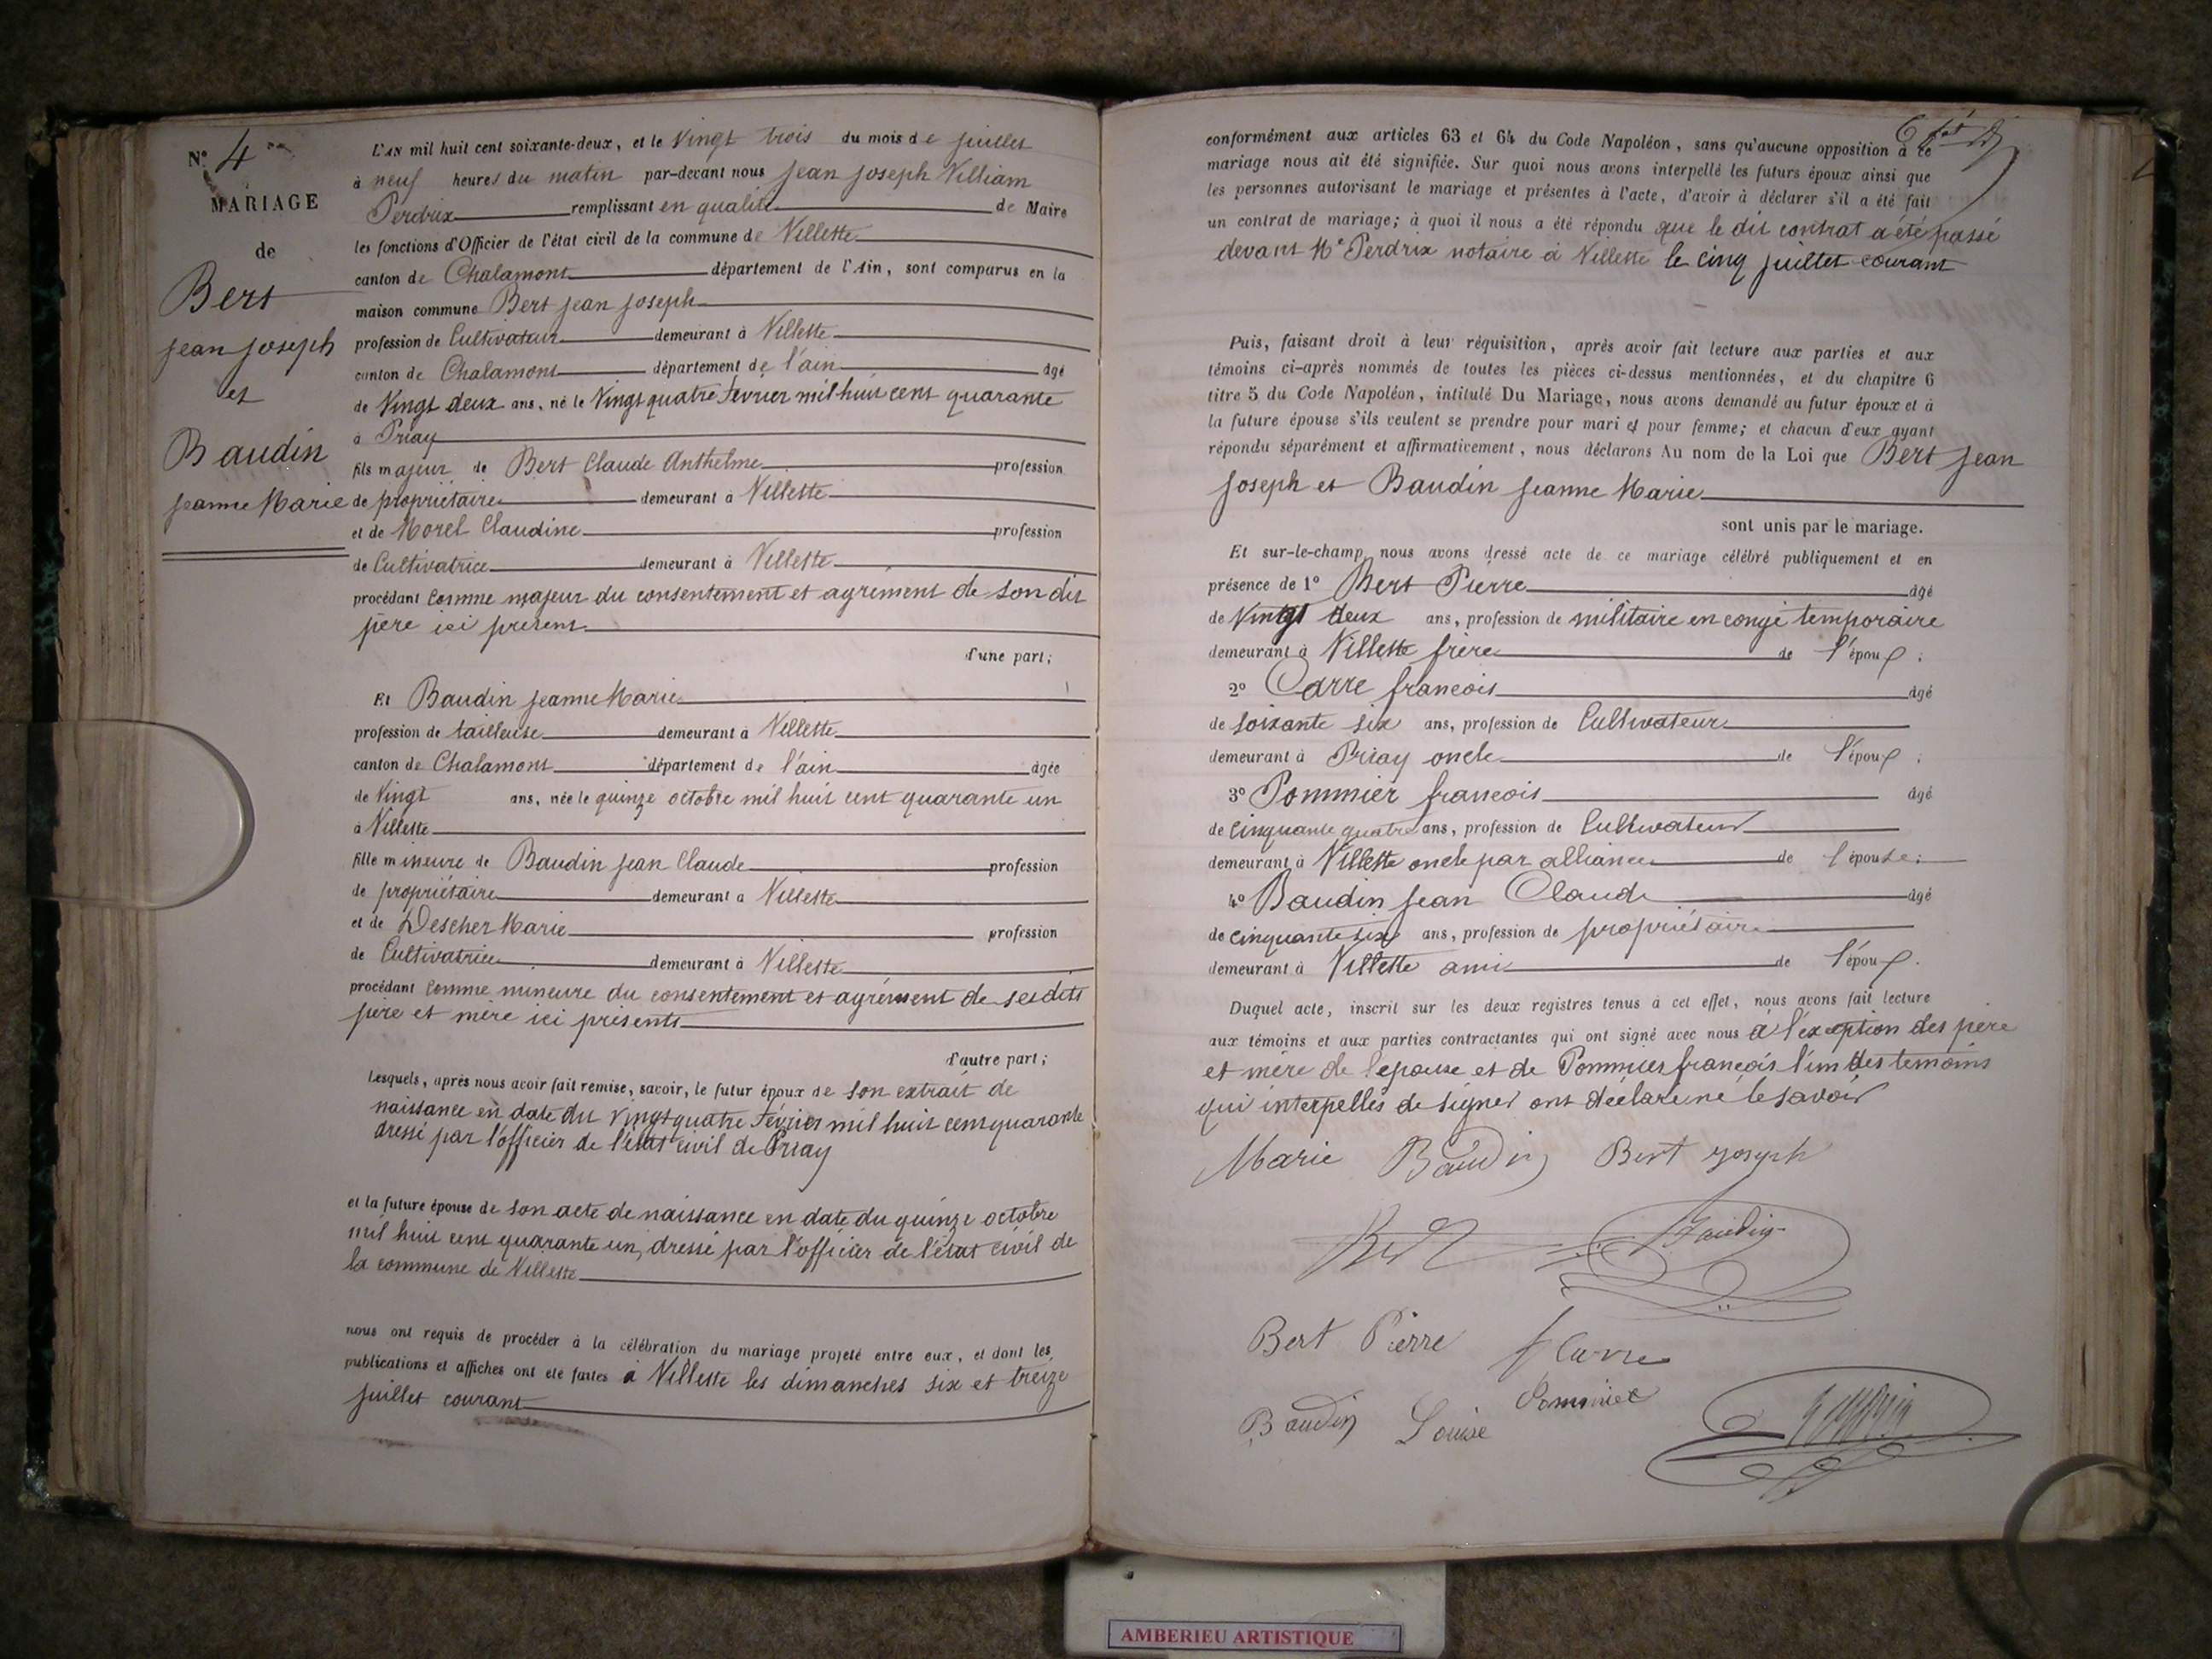 N° 4
MARIAGE
de
Bert
Jean Joseph
et
Baudin
Jeanne Marie
L'AN mil huit cent soixante-deux, et le Vingt trois du mois de juillet
à neuf heures du matin par-devant nous Jean Joseph Villiam
Perdrix remplissant en qualité de Maire
les fonctions d'Officier de l'état civil de la commune de Villette
canton de Chalamont département de l'Ain, sont comparus en la
maison commune Bert Jean Joseph
profession de Cultivateur demeurant à Villette
canton de Chalamont département de l'ain âgé
de Vingt deux ans, né le Vingt quatre Fevrier mil huit cent quarante
à Priay
fils majeur de Bert Claude Anthelme profession
de propriétaire demeurant à Villette
et de Morel Claudine profession
de Cultivatrice demeurant à Villette
procédant comme majeur du consentement et agrément de son dit
père ici present
d'une part;
Et Baudin Jeanne Marie
profession de tailleuse demeurant à Villette
canton de Chalamont département de l'ain âgée
de Vingt ans, née le quinze octobre mil huit cent quarante un
à Villette
fille mineure de Baudin Jean Claude profession
de propriétaire demeurant à Villette
et de Descher Marie profession
de Cultivatrice demeurant à Villette
procédant comme mineure du consentement et agrément de ses dits
père et mère ici présents
d'autre part;
Lesquels, après nous avoir fait remise, savoir, le futur époux de son extrait de
naissance en date du vingt quatre Février mil huit cent quarante
dressé par l'officier de l'état civil de Priay
et la future épouse de son acte de naissance en date du quinze octobre
mil huit cent quarante un, dressé par l'officier de l'état civil de
la commune de Villette
nous ont requis de procéder à la célébration du mariage projeté entre eux, et dont les
publications et affiches ont été faites à Villette les dimanches six et treize
juillet courant
conformément aux articles 63 et 64 du Code Napoléon, sans qu'aucune opposition à ce
mariage nous ait été signifiée. Sur quoi nous avons interpellé les futurs époux ainsi que
les personnes autorisant le mariage et présentes à l'acte, d'avoir à déclarer s'il a été fait
un contrat de mariage; à quoi il nous a été répondu que le dit contrat a été passé
devant Me Perdrix notaire à Villette le cinq juillet courant
Puis, faisant droit à leur réquisition, après avoir fait lecture aux parties et aux
témoins ci-après nommés de toutes les pièces ci-dessus mentionnées, et du chapitre 6
titre 5 du Code Napoléon, intitulé Du Mariage, nous avons demandé au futur époux et à
la future épouse s'ils veulent se prendre pour mari et pour femme; et chacun d'eux ayant
répondu séparément et affirmativement, nous déclarons Au nom de la Loi que Bert Jean
Joseph et Baudin Jeanne Marie
sont unis par le mariage.
Et sur-le-champ nous avons dressé acte de ce mariage célébré publiquement et en
présence de 1° Bert Pierre âgé
de Vingt deux ans, profession de militaire en congé temporaire
demeurant à Villette frère de l'époux;
2° Carre francois âgé
de soixante six ans, profession de Cultivateur
demeurant à Priay oncle de l'époux;
3° Pommier francois âgé
de cinquante quatre ans, profession de Cultivateur
demeurant à Villette oncle par alliance de l'épouse;
4° Baudin Jean Claude âgé
de cinquante six ans, profession de propriétaire
demeurant à Villette ami de l'époux.
Duquel acte, inscrit sur les deux registres tenus à cet effet, nous avons fait lecture
aux témoins et aux parties contractantes qui ont signé avec nous à l'exception des père
et mère de l'epouse et de Pommier françois l'un des temoins
qui interpellés de signer ont déclaré ne le savoir
Marie Baudin Bert Joseph
Bert Baudin
Bert Pierre f Carre
Baudin Louise Pommier
AMBERIEU ARTISTIQUE